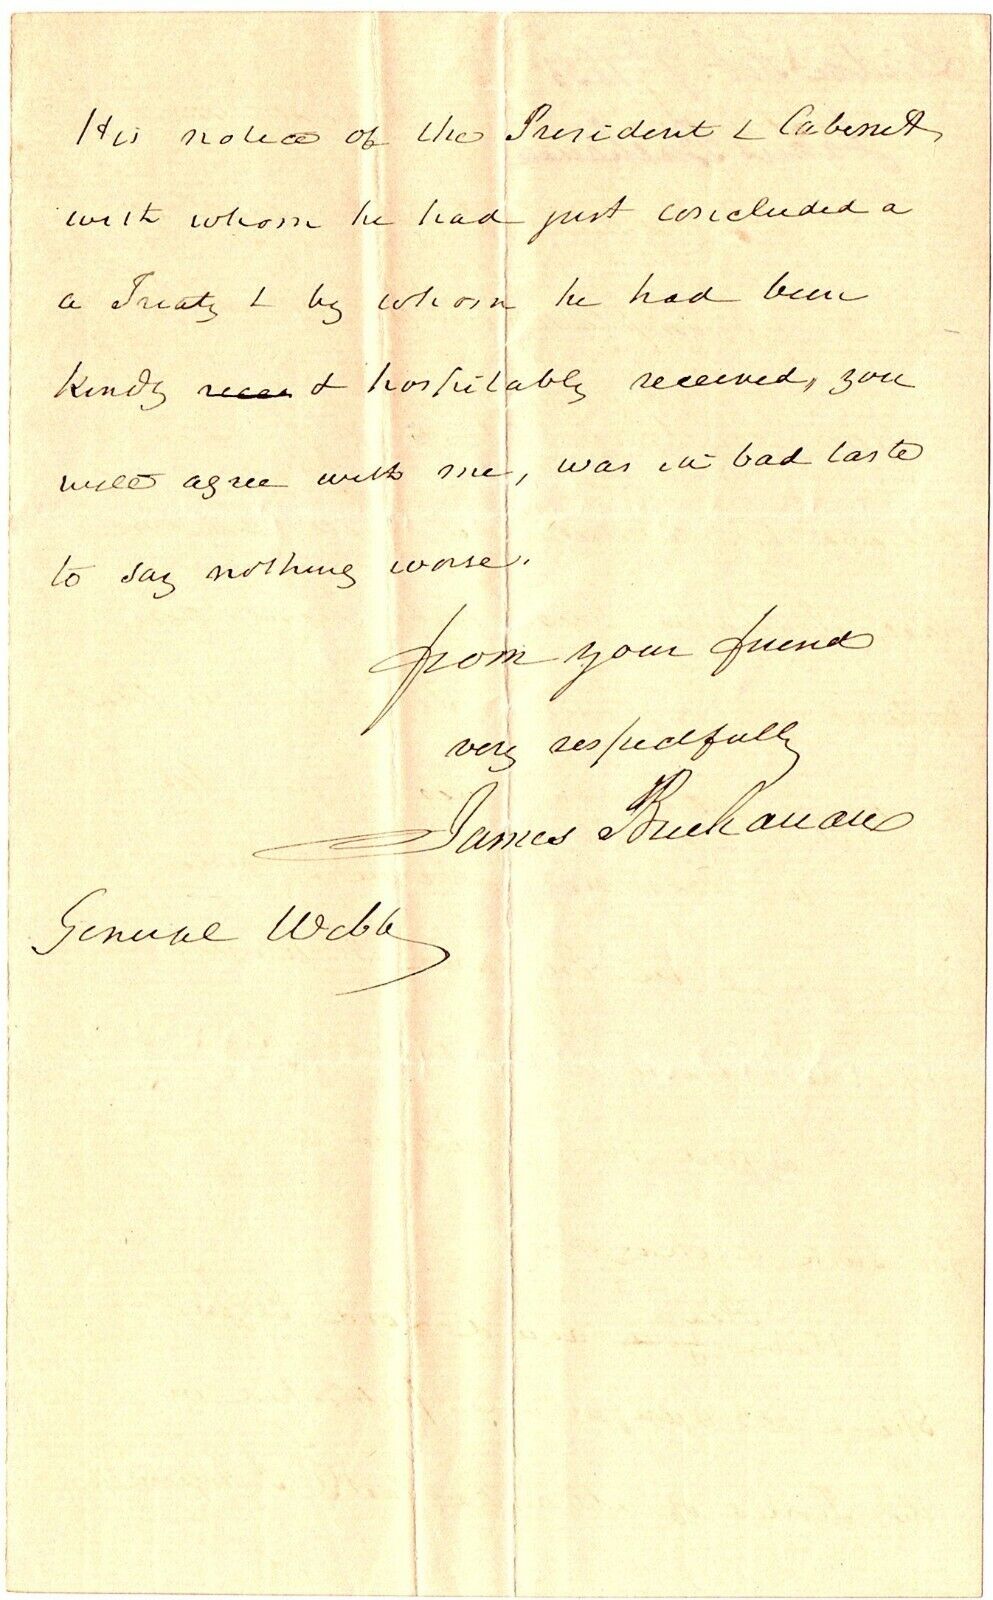 His notice of the President & Cabinet,
with whom he had just concluded a
a Treaty & by whom he had been
kindly recei & hospitably received, you
will agree with me, was in bad taste
to say nothing worse.
from your friend
very respectfully
James Buchanan
General Webb